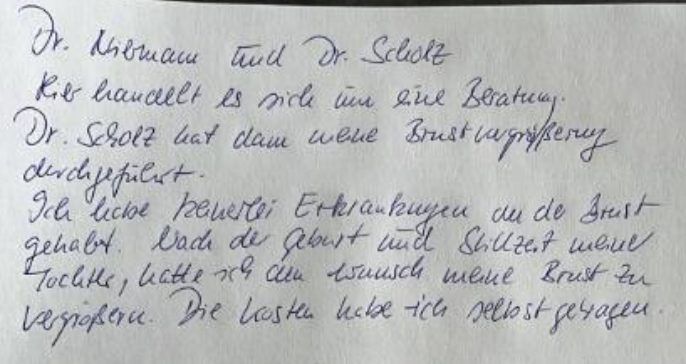 Dr. Niemann und Dr. Scholz
Hier handelt es sich um eine Beratung.
Dr. Scholz hat dann meine Brustvergrößerung
durchgeführt.
Ich habe keinerlei Erkrankungen an der Brust
gehabt. Nach der Geburt und Stillzeit meiner
Tochter, hatte ich den Wunsch meine Brust zu
vergrößern. Die Kosten habe ich selbst getragen.